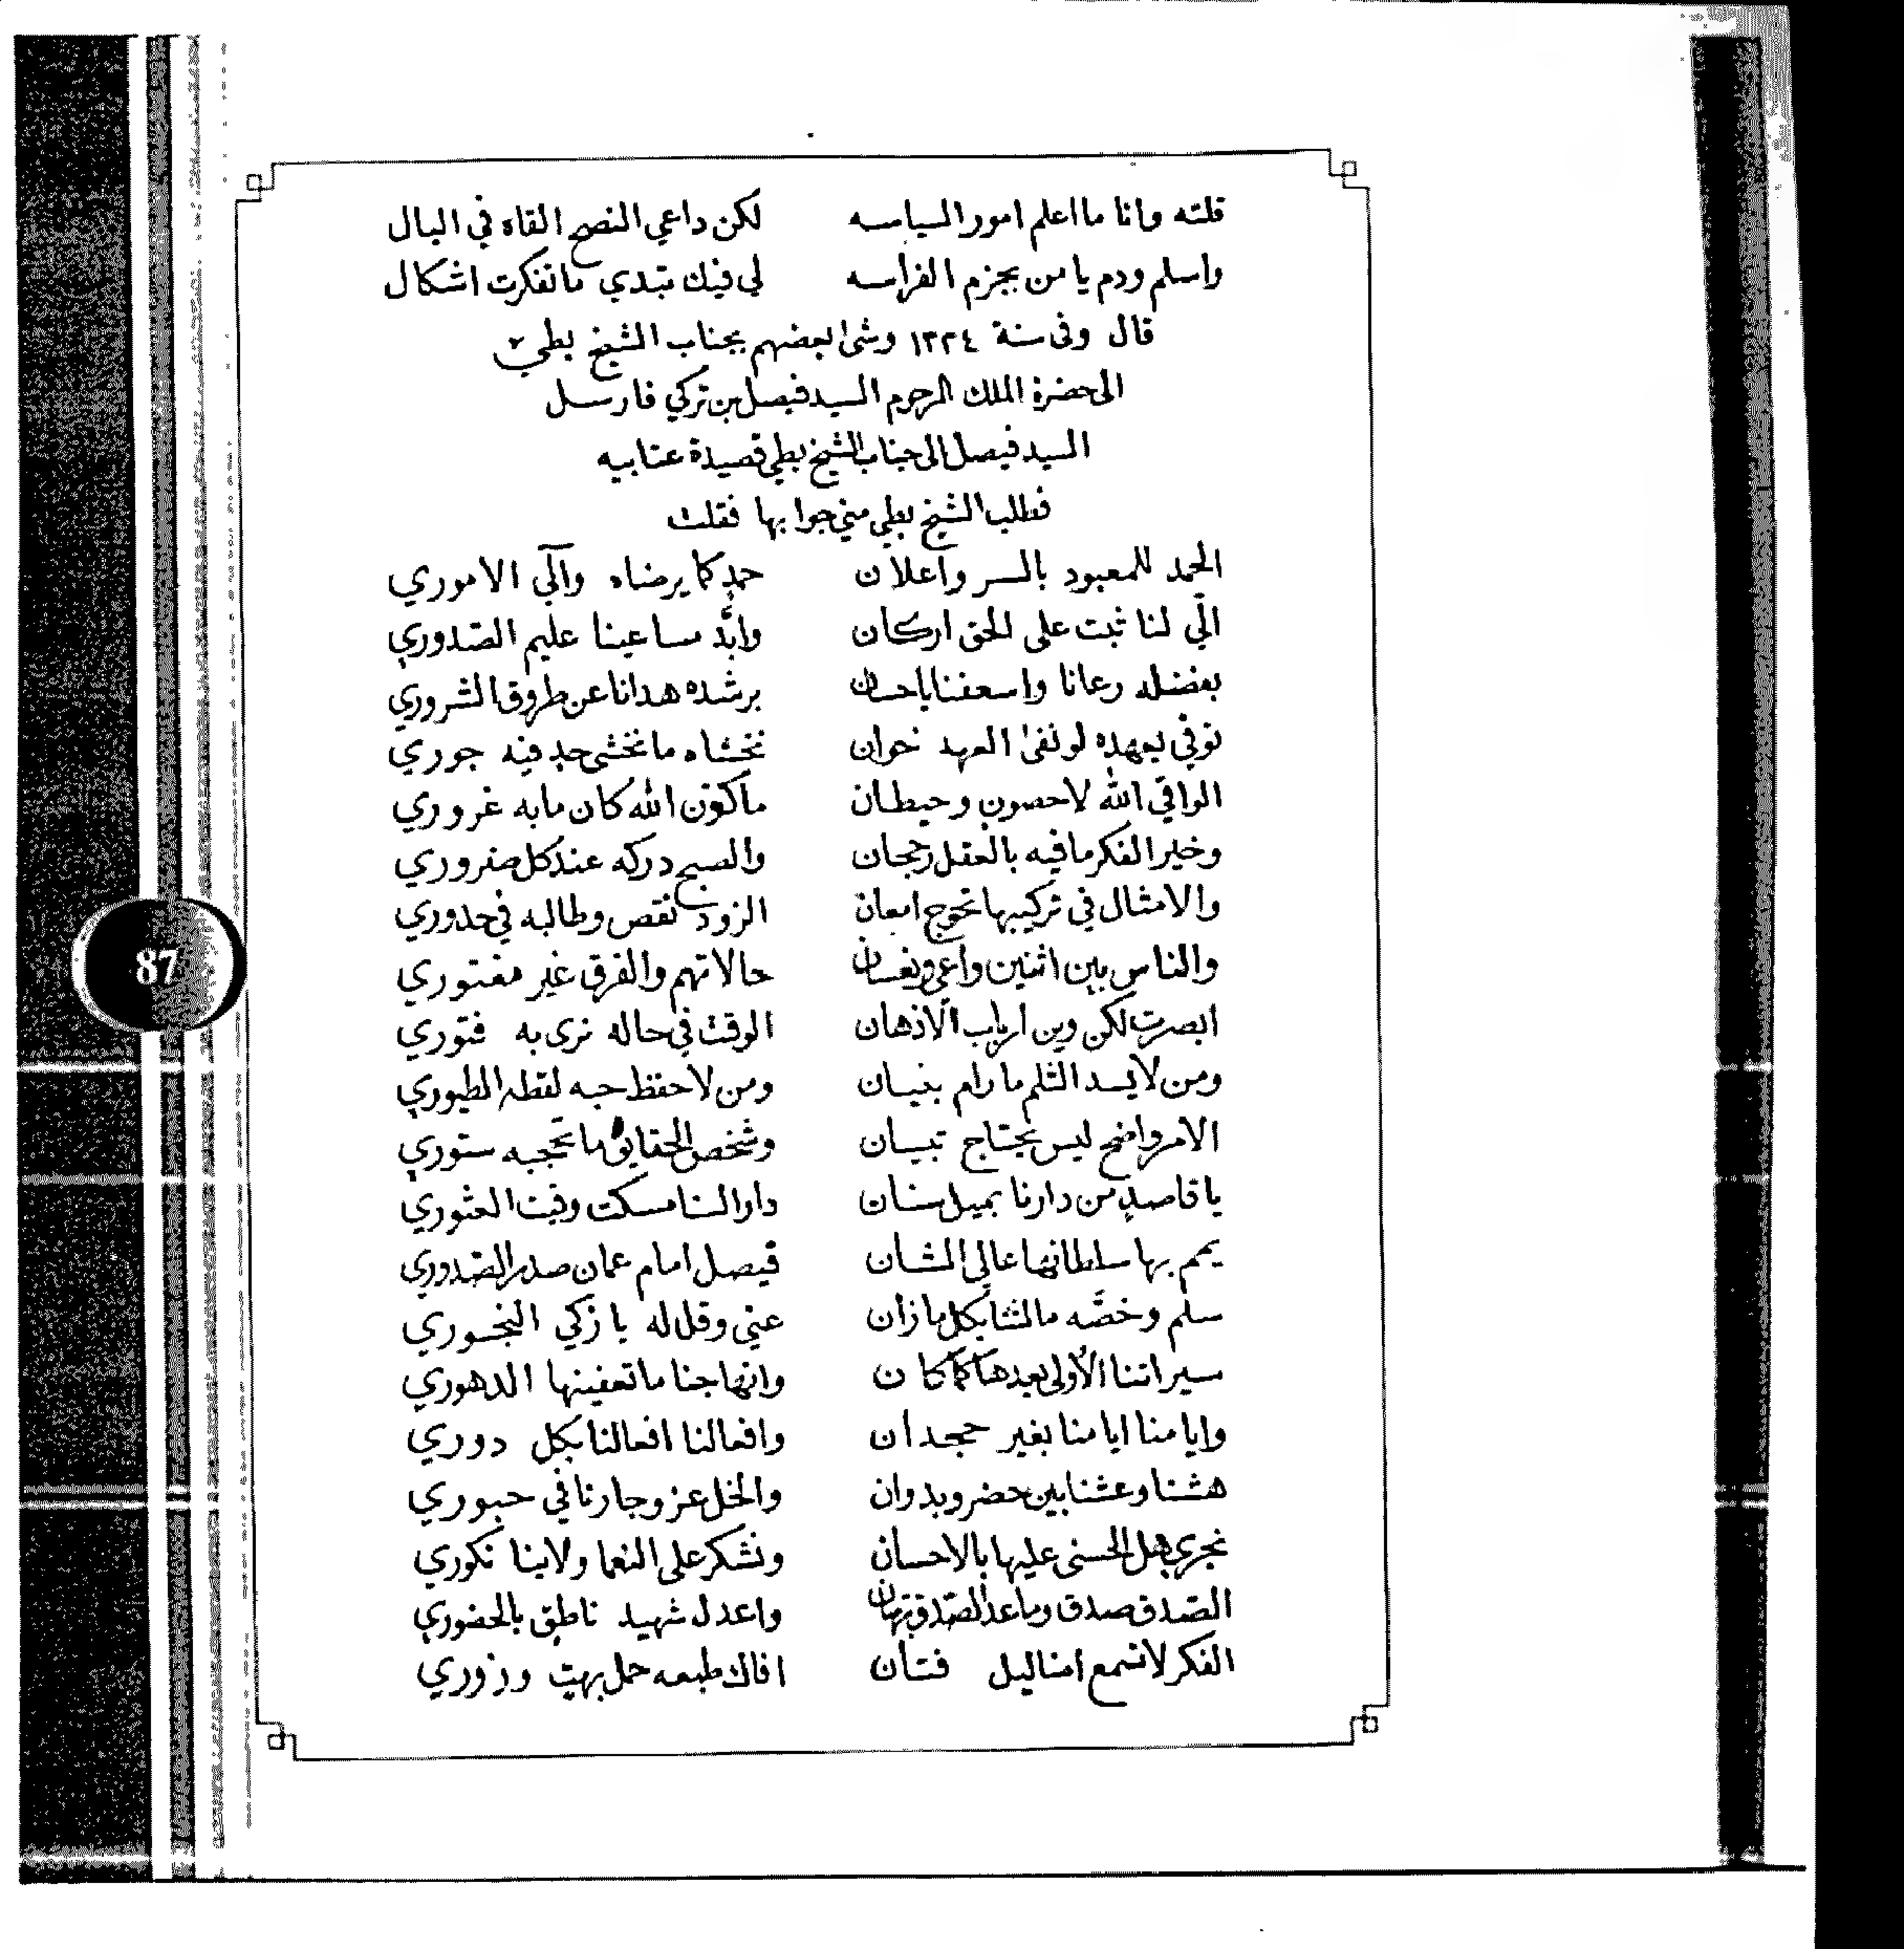 قلته وانا ما اعلم امور السياسه لكن داعي النصح القاه في البال
واسلم ودم يا من بجزم الفراسه لي فيك تبدي ما تفكرت اشكال
قال وفى سنة ١٣٢٤ وشى بعضهم بجناب الشيخ بطي
الى حضرة الملك المرحوم السيد فيصل بن تركي فارسل
السيد فيصل الى جناب الشيخ بطي قصيدة عتابيه
فطلب الشيخ بطي مني جوابها فقلت
الحمد للمعبود بالسر واعلان حمدٍ كما يرضاه والي الاموري
الّي لنا ثبت على الحق اركان وايّد مساعينا عليم الصّدوري
بفضله رعانا واسعفنا باحسان برشده هدانا عن طروق الشروري
نوفي بعهده لو نفى العهد خوان نخشاه ما نخشى حدٍ فيه جوري
الواقي الله لا حصون وحيطان ما كوّن الله كان مابه غروري
وخير الفكر ما فيه بالعقل رجحان والصبح دركه عند كل ضروري
والامثال في تركيبها تحوج امعان الزود نقص وطالبه في حدوري
والناس بين اثنين واعي ونعسان حالاتهم والفرق غير مغتوري
ابصرت لكن وين ارباب الاذهان الوقت في حاله نرى به فتوري
ومن لا يسد الثلم ما رام بنيان ومن لا حفظ حبه لقطه الطيوري
الامر واضح ليس يحتاج تبيان وشخص الحقايق ما تحجبه ستوري
يا قاصدٍ من دارنا بميل سنان دار السنا مسكت وقيت العثوري
يمم بها سلطانها عالي الشان فيصل امام عمان صدر الصّدوري
سلم وخصّه مالثنا بكل ما زان عني وقل له يا زكي النجوري
سيراتنا الأولى بعدها كما كان وانهاجنا ما تعفينها الدهوري
وايامنا ايامنا بغير حجدان وافعالنا افعالنا بكل دوري
هشنا وعشنا بين حضر وبدوان والخل عز وجارنا في حبوري
نجزي هل الحسنى عليها بالاحسان ونشكر على النعما ولابنا نكوري
الصّدق صدق وما عدا الصّدق بهتان واعدل شهيد ناطق بالحضوري
الفكر لا تسمع اضاليل فتان افاك طبعه حمل بهت وزوري
87